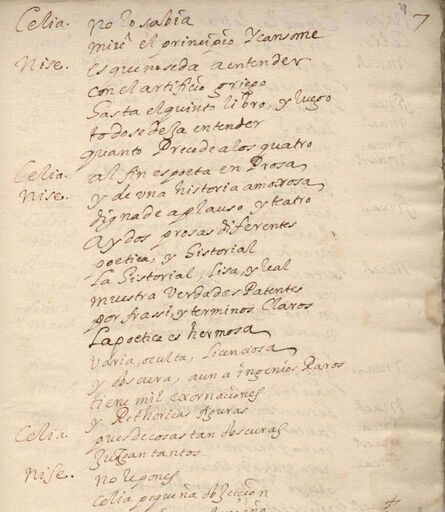 9 7
Celia. no lo sabia
mire el principio y cansome
Nise. es que no se da a entender
con el artificio griego
hasta el quinto libro, y luego
todo se deja entender
quanto precede a los quatro
Celia. al fin es poeta en Prosa
Nise. y de una historia amorosa
digna de aplauso y teatro
ay dos prosas diferentes
poetica, y historial
la historial, lisa, y leal
muestra verdades Patentes
por frassi, y terminos Claros
la poetica es hermosa
varia, oculta, licenciosa
y obscura, aun a ingenios Raros
tiene mil exornaciones
y Rethoricas figuras
Celia. pues de cosas tan obscuras
juzgan tantos
Nise. no le pones
celia pequeña objeccion